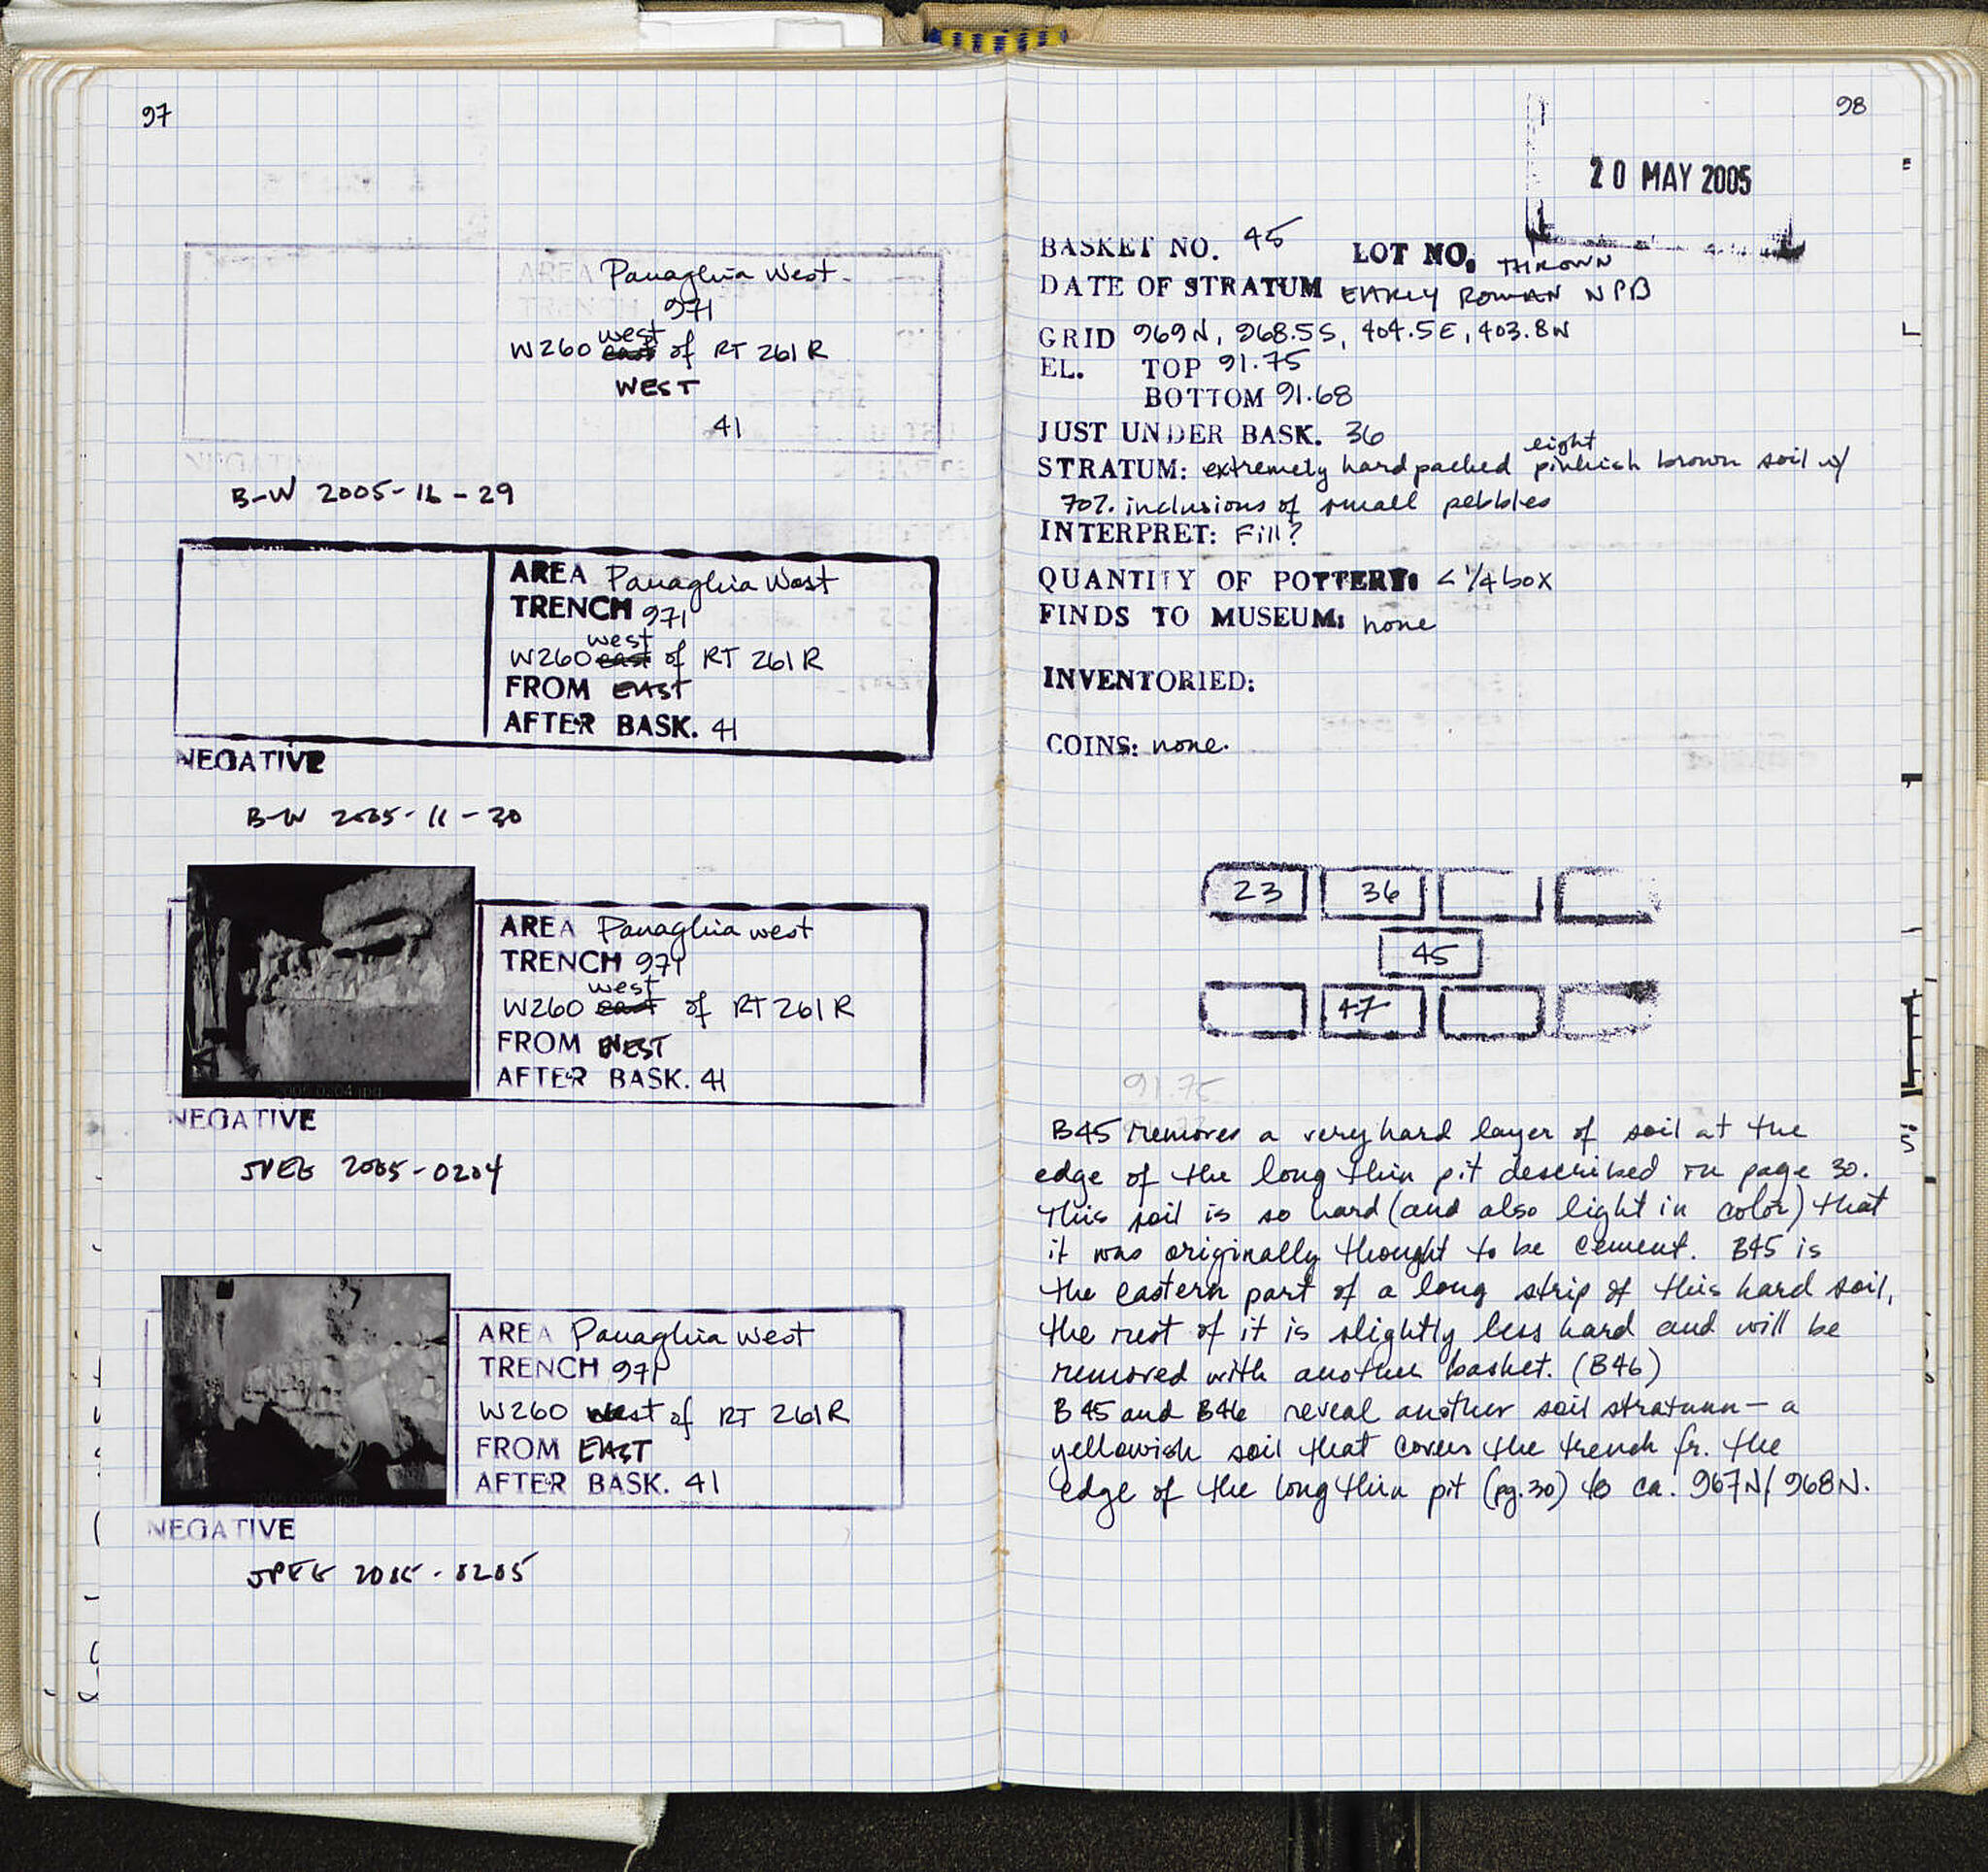 97
AREA Panaghia West
TRENCH 971
west
W260 east of RT 261 R
WEST
41
B-W 2005-11-29
AREA Panaghia West
TRENCH 971
west
W260 east of RT 261 R
FROM EAST
AFTER BASK. 41
NEGATIVE
B-W 2005-11-30
AREA Panaghia west
TRENCH 971
west
W260 east of RT 261 R
FROM WEST
AFTER BASK. 41
NEGATIVE
JPEG 2005-0204
AREA Panaghia West
TRENCH 971
W260 west of RT 261 R
FROM EAST
AFTER BASK. 41
NEGATIVE
JPEG 2005-0205
98
20 MAY 2005
BASKET NO. 45 LOT NO. THROWN
DATE OF STRATUM EARLY ROMAN NPB
GRID 969N, 968.5S, 404.5E, 403.8W
EL. TOP 91.75
BOTTOM 91.68
JUST UNDER BASK. 36
light
STRATUM: extremely hard packed pinkish brown soil w/
70% inclusions of small pebbles
INTERPRET: Fill?
QUANTITY OF POTTERY: < 1/4 box
FINDS TO MUSEUM: none
INVENTORIED:
COINS: none.
23 36
45
47
91.75
B45 removes a very hard layer of soil at the
edge of the long thin pit described on page 30.
This soil is so hard (and also light in color) that
it was originally thought to be cement. B45 is
the eastern part of a long strip of this hard soil,
the rest of it is slightly less hard and will be
removed with another basket. (B46)
B45 and B46 reveal another soil stratum – a
yellowish soil that covers the trench fr. the
edge of the long thin pit (pg. 30) to ca. 967N/968N.